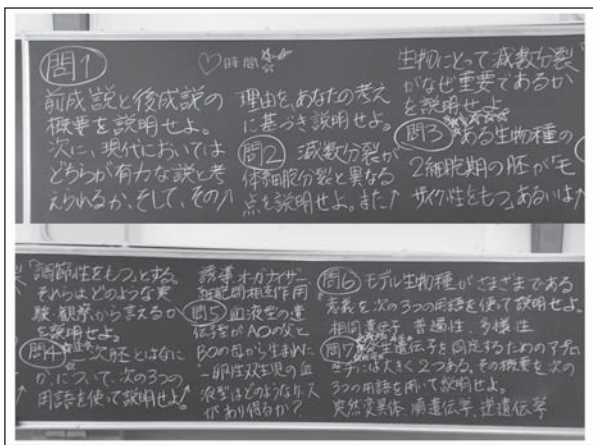 問1
♡時間☆
前成説と後成説の
概要を説明せよ。
次に、現代においては
どちらが有力な説と考
えられるか、そして、その
理由を、あなたの考え
に基づき説明せよ。
問2 減数分裂が
体細胞分裂と異なる
点を説明せよ。また↑
生物にとって減数分裂
がなぜ重要であるか
を説明せよ
問3 ある生物種の
2細胞期の胚が「モ
ザイク性をもつ」あるいは↑
「調節性をもつ」とする。
それらはどのような実
験、観察から言えるか
を説明せよ。
問4 二次胚とはなに
か、について、次の3つの
用語を使って説明せよ↑
誘導 オーガナイザー
細胞間相互作用
問5 血液型の遺
伝子型がAOの父と
BOの母から生まれた
一卵性双生児の血
液型はどのようなケース
があり得るか?
問6 モデル生物種がさまざまである
意義を次の3つの用語を使って説明せよ。
相同遺伝子 普遍性 多様性
問7 発生遺伝子を同定するためのアプロ
ーチには大きく2つある、その概要を次の
3つの用語を用いて説明せよ。
突然変異体、順遺伝学、逆遺伝学